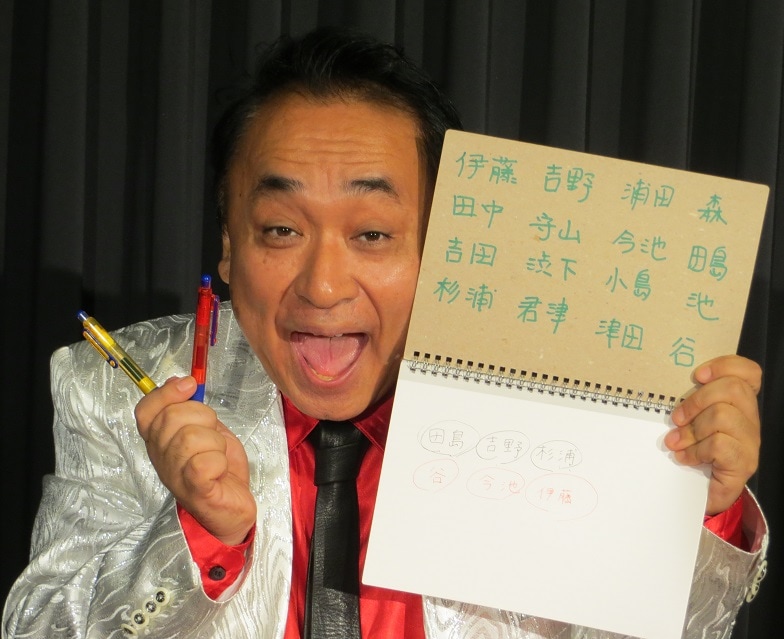 伊藤 吉野 浦田 森
田中 守山 今池 田島
吉田 渋下 小島 池
杉浦 君津 津田 谷
田島 吉野 杉浦
谷 今池 伊藤